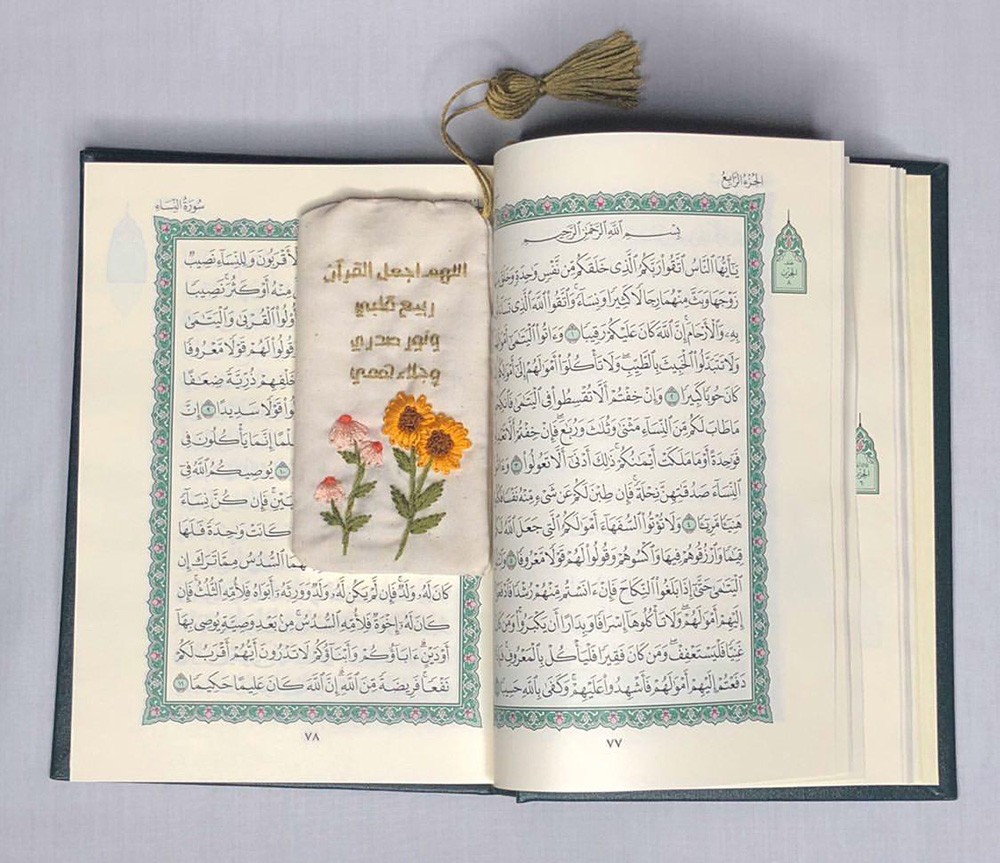 الجُزْءُ الرَّابِعُ
بِسْمِ ٱللَّهِ ٱلرَّحْمَٰنِ ٱلرَّحِيمِ
يَٰٓأَيُّهَا ٱلنَّاسُ ٱتَّقُوا۟ رَبَّكُمُ ٱلَّذِى خَلَقَكُم مِّن نَّفْسٍ وَٰحِدَةٍ وَخَلَقَ
زَوْجَهَا وَبَثَّ مِنْهُمَا رِجَالًا كَثِيرًا وَنِسَآءً ۚ وَٱتَّقُوا۟ ٱللَّهَ ٱلَّذِى
بِهِۦ وَٱلْأَرْحَامَ ۚ إِنَّ ٱللَّهَ كَانَ عَلَيْكُمْ رَقِيبًا ١ وَءَاتُوا۟ ٱلْيَتَٰمَىٰٓ
وَلَا تَتَبَدَّلُوا۟ ٱلْخَبِيثَ بِٱلطَّيِّبِ ۖ وَلَا تَأْكُلُوٓا۟ أَمْوَٰلَهُمْ إِلَىٰٓ أَمْوَٰلِكُمْ
كَانَ حُوبًا كَبِيرًا ٢ وَإِنْ خِفْتُمْ أَلَّا تُقْسِطُوا۟ فِى ٱلْيَتَٰمَىٰ فَٱنكِحُوا۟
مَا طَابَ لَكُم مِّنَ ٱلنِّسَآءِ مَثْنَىٰ وَثُلَٰثَ وَرُبَٰعَ ۖ فَإِنْ خِفْتُمْ أَلَّا تَعْدِلُوا۟
فَوَٰحِدَةً أَوْ مَا مَلَكَتْ أَيْمَٰنُكُمْ ۚ ذَٰلِكَ أَدْنَىٰٓ أَلَّا تَعُولُوا۟ ٣ وَءَاتُوا۟
ٱلنِّسَآءَ صَدُقَٰتِهِنَّ نِحْلَةً ۚ فَإِن طِبْنَ لَكُمْ عَن شَىْءٍ مِّنْهُ نَفْسًا
هَنِيٓـًٔا مَّرِيٓـًٔا ٤ وَلَا تُؤْتُوا۟ ٱلسُّفَهَآءَ أَمْوَٰلَكُمُ ٱلَّتِى جَعَلَ ٱللَّهُ
قِيَٰمًا وَٱرْزُقُوهُمْ فِيهَا وَٱكْسُوهُمْ وَقُولُوا۟ لَهُمْ قَوْلًا مَّعْرُوفًا ٥
ٱلْيَتَٰمَىٰ حَتَّىٰٓ إِذَا بَلَغُوا۟ ٱلنِّكَاحَ فَإِنْ ءَانَسْتُم مِّنْهُمْ رُشْدًا فَٱدْفَعُوٓا۟
إِلَيْهِمْ أَمْوَٰلَهُمْ ۖ وَلَا تَأْكُلُوهَآ إِسْرَافًا وَبِدَارًا أَن يَكْبَرُوا۟ ۚ وَمَن
غَنِيًّا فَلْيَسْتَعْفِفْ ۖ وَمَن كَانَ فَقِيرًا فَلْيَأْكُلْ بِٱلْمَعْرُوفِ ۚ
دَفَعْتُمْ إِلَيْهِمْ أَمْوَٰلَهُمْ فَأَشْهِدُوا۟ عَلَيْهِمْ ۚ وَكَفَىٰ بِٱللَّهِ حَسِيبًا
٧٧
سُورَةُ النِّسَاءِ
ٱلْأَقْرَبُونَ وَلِلنِّسَآءِ نَصِيبٌ
مِنْهُ أَوْ كَثُرَ ۚ نَصِيبًا
أُو۟لُوا۟ ٱلْقُرْبَىٰ وَٱلْيَتَٰمَىٰ
وَقُولُوا۟ لَهُمْ قَوْلًا مَّعْرُوفًا
خَلْفِهِمْ ذُرِّيَّةً ضِعَٰفًا
قَوْلًا سَدِيدًا ٩ إِنَّ
ظُلْمًا إِنَّمَا يَأْكُلُونَ فِى
١٠ يُوصِيكُمُ ٱللَّهُ فِىٓ
فَإِن كُنَّ نِسَآءً
كَانَتْ وَٰحِدَةً فَلَهَا
ٱلسُّدُسُ مِمَّا تَرَكَ إِن
كَانَ لَهُۥ وَلَدٌ ۚ فَإِن لَّمْ يَكُن لَّهُۥ وَلَدٌ وَوَرِثَهُۥٓ أَبَوَاهُ فَلِأُمِّهِ ٱلثُّلُثُ ۚ فَإِن
كَانَ لَهُۥٓ إِخْوَةٌ فَلِأُمِّهِ ٱلسُّدُسُ ۚ مِنۢ بَعْدِ وَصِيَّةٍ يُوصِى بِهَآ
أَوْ دَيْنٍ ۗ ءَابَآؤُكُمْ وَأَبْنَآؤُكُمْ لَا تَدْرُونَ أَيُّهُمْ أَقْرَبُ لَكُمْ
نَفْعًا ۚ فَرِيضَةً مِّنَ ٱللَّهِ ۗ إِنَّ ٱللَّهَ كَانَ عَلِيمًا حَكِيمًا ١١
٧٨
اللهم اجعل القرآن
ربيع قلبي
ونور صدري
وجلاء همي